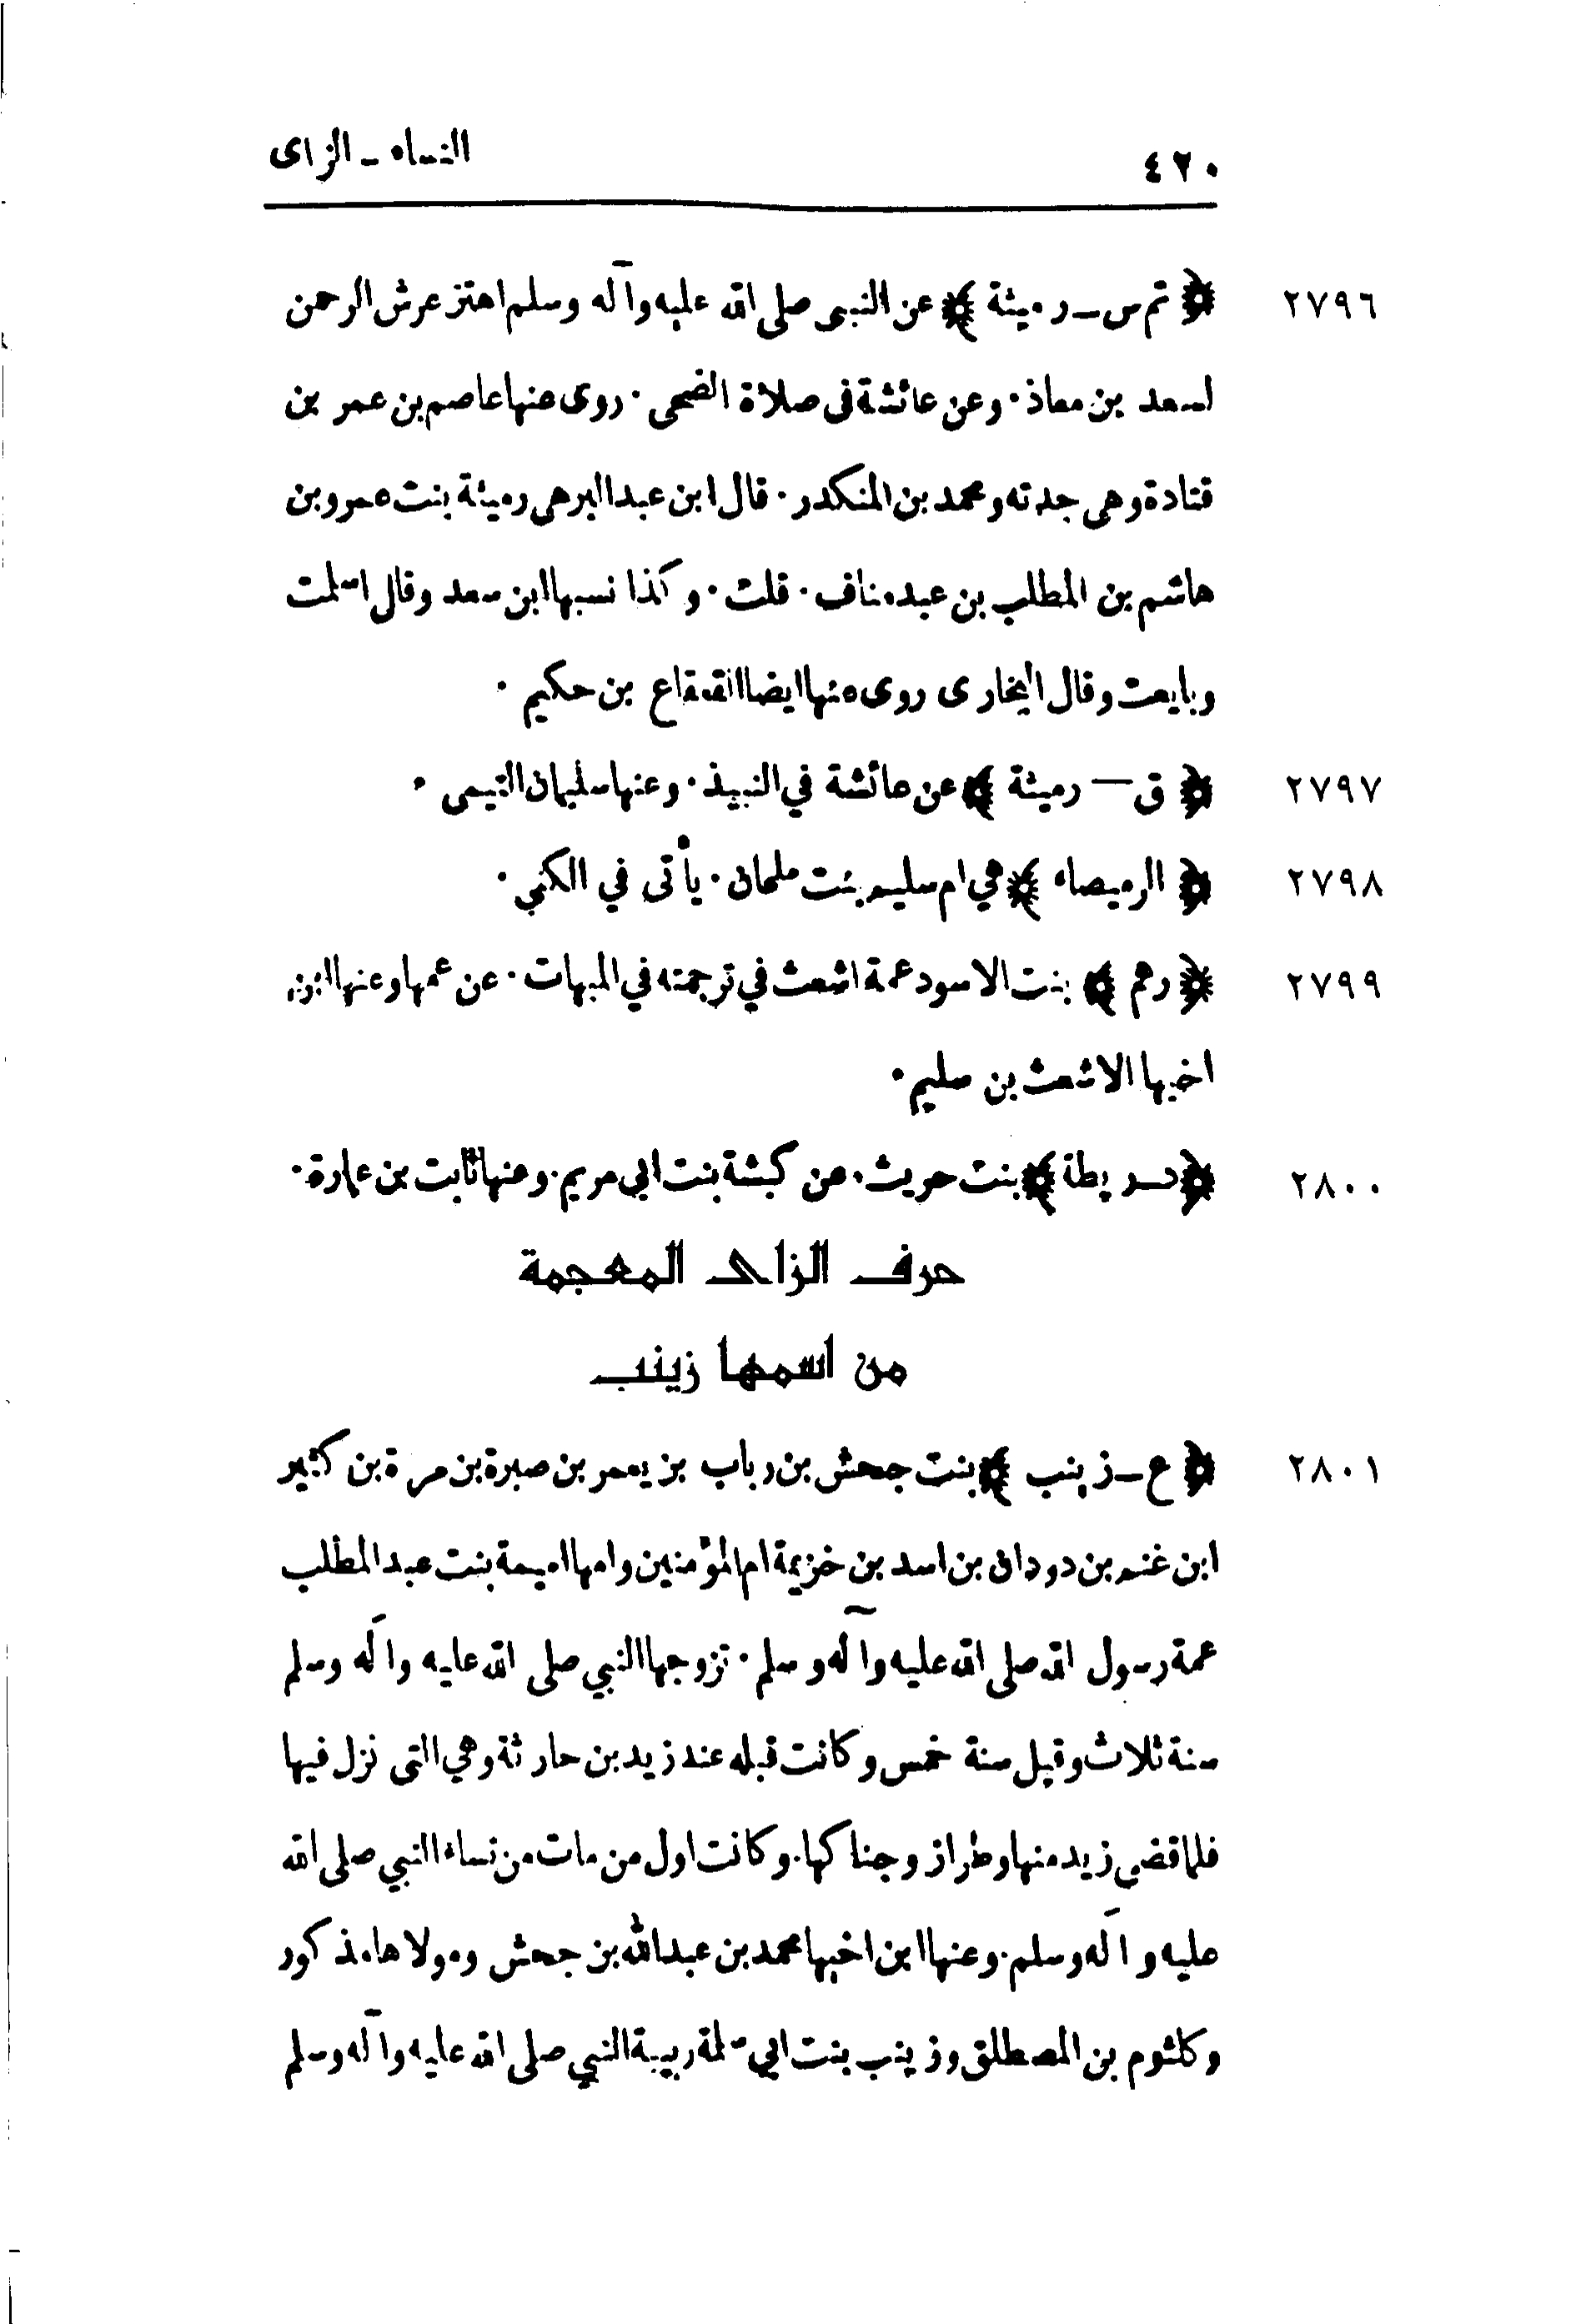 ٤٢٠ النساء ـ الزاى
٢٧٩٦ ﴿ تم س ـ رميثة ﴾ عن النبى صلى الله عليه وآله وسلم اهتز عرش الرحمن
لسعد بن معاذ. وعن عائشة فى صلاة الضحى. روى عنها عاصم بن عمر بن
قتادة وهى جدته ومحمد بن المنكدر. قال ابن عبد البر هى رميثة بنت عمرو بن
هاشم بن المطلب بن عبد مناف. قلت. وكذا نسبها ابن سعد وقال اسلمت
وبايعت وقال البخارى روى عنها ايضا القعقاع بن حكيم.
٢٧٩٧ ﴿ ق — رميثة ﴾ عن عائشة في النبيذ. وعنها سليمان التيمى.
٢٧٩٨ ﴿ الرميصاء ﴾ هي ام سليم بنت ملحان. يأتى في الكنى.
٢٧٩٩ ﴿ رهم ﴾ بنت الاسود عمة اشعث في ترجمته في المبهات. عن عمها وعنها ابن
اخيها الاشعث بن سليم.
٢٨٠٠ ﴿ د ـ ريطة ﴾ بنت حريث. عن كبشة بنت ابي مريم. وعنها ثابت بن عمارة.
حرف الزاى المعجمة
من اسمها زينب
٢٨٠١ ﴿ ع ـ زينب ﴾ بنت جحش بن رباب بن يعمر بن صبرة بن مرة بن كثير
ابن غنم بن دودان بن اسد بن خزيمة ام المؤمنين وامها اميمة بنت عبد المطلب
عمة رسول الله صلى الله عليه وآله وسلم. تزوجها النبي صلى الله عليه وآله وسلم
سنة ثلاث وقيل سنة خمس وكانت قبله عند زيد بن حارثة وهي التى نزل فيها
فلما قضى زيد منها وطرا زوجناكها. وكانت اول من مات من نساء النبي صلى الله
عليه وآله وسلم. وعنها ابن اخيها محمد بن عبد الله بن جحش ومولاها مذكور
وكلثوم بن المصطلق وزينب بنت ابي سلمة ربيبة النبي صلى الله عليه وآله وسلم